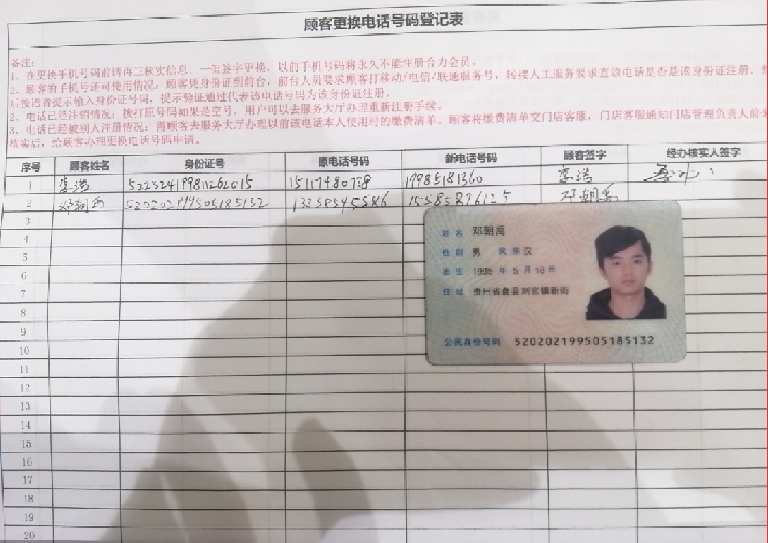 顾客更换电话号码登记表
备注:
1、在更换手机号码前请再三核实信息,一但签字更换,以前手机号码将永久不能注册合力会员。
2、顾客的手机号还可使用情况:顾客凭身份证到前台,前台人员要求顾客打移动/电信/联通服务号,转接人工服务要求查该电话是否是该身份证注册,然
后按语音提示输入身份证号码,提示验证通过代表该电话号码为该身份证注册。
2、电话已经注销情况:拨打原号码如果是空号,用户可以去服务大厅办理重新注册手续。
3、电话已经被别人注册情况:需顾客去服务大厅办理以前该电话本人使用时的缴费清单。顾客将缴费清单交门店客服,门店客服通知门店管理负责人前来
核实后,给顾客办理更换电话号码申请。
序号 顾客姓名 身份证号 原电话号码 新电话号码 顾客签字 经办核实人签字
1 李浩 19985181360 李浩
2 520202199505185132
3
4
5
6
7
8
9
10
11
12
13
14
15
16
17
18
19
20
姓名 邓朝禹
性别 男 民族 汉
出生 1995 年 5 月 18 日
住址 贵州省盘县刘官镇新街
公民身份号码 520202199505185132